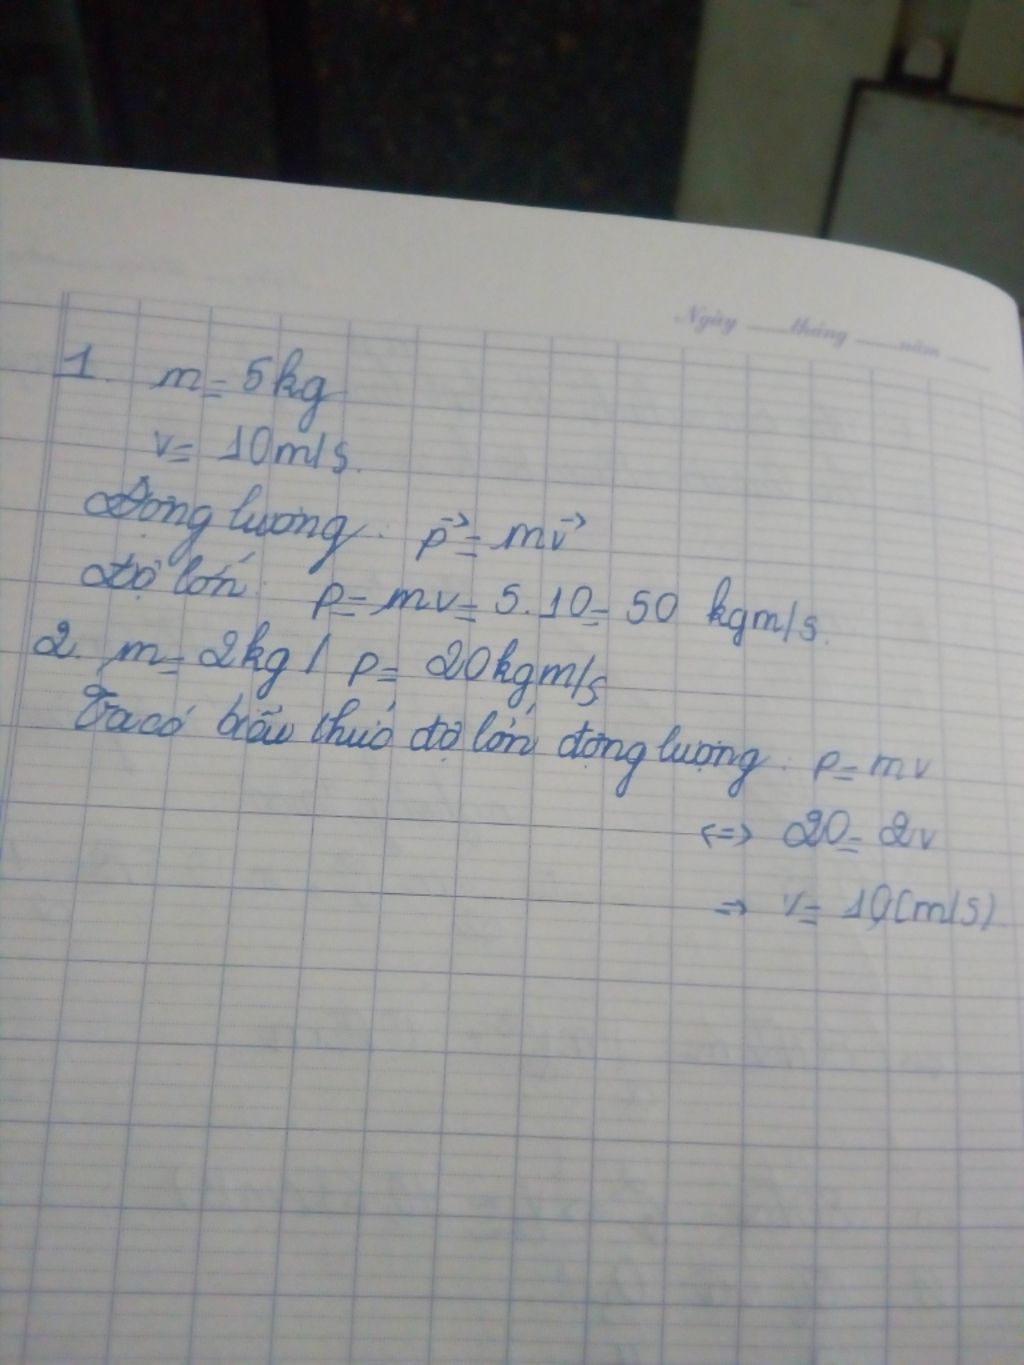 Ngày ......tháng ......năm ......
1. m = 5kg
v = 10m/s.
Động lượng: p⃗ = mv⃗
Độ lớn: p = mv = 5.10 = 50 kgm/s.
2. m = 2kg / p = 20kgm/s
Ta có biểu thức độ lớn động lượng: p = mv
<=> 20 = 2v
=> v = 10(m/s)